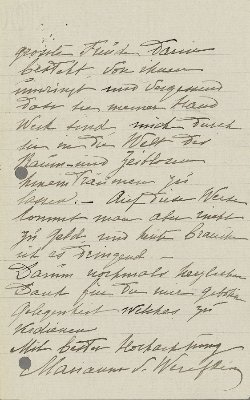 größte Freude. Darin
besteht, von ihnen
umringt und vergessend
dass sie meiner Hand
Werk sind, mich durch
sie in die Welt des
Raum- und Zeitlosen
hinein träumen zu
lassen. – Auf diese Weise
kommt man aber nicht
zu Geld und heute brauche
ich es dringend –
Darum nochmals herzlichen
Dank für die mir gebotene
Gelegenheit welches zu
verdienen
Mit bester Hochachtung
Marianne v. Werefkin